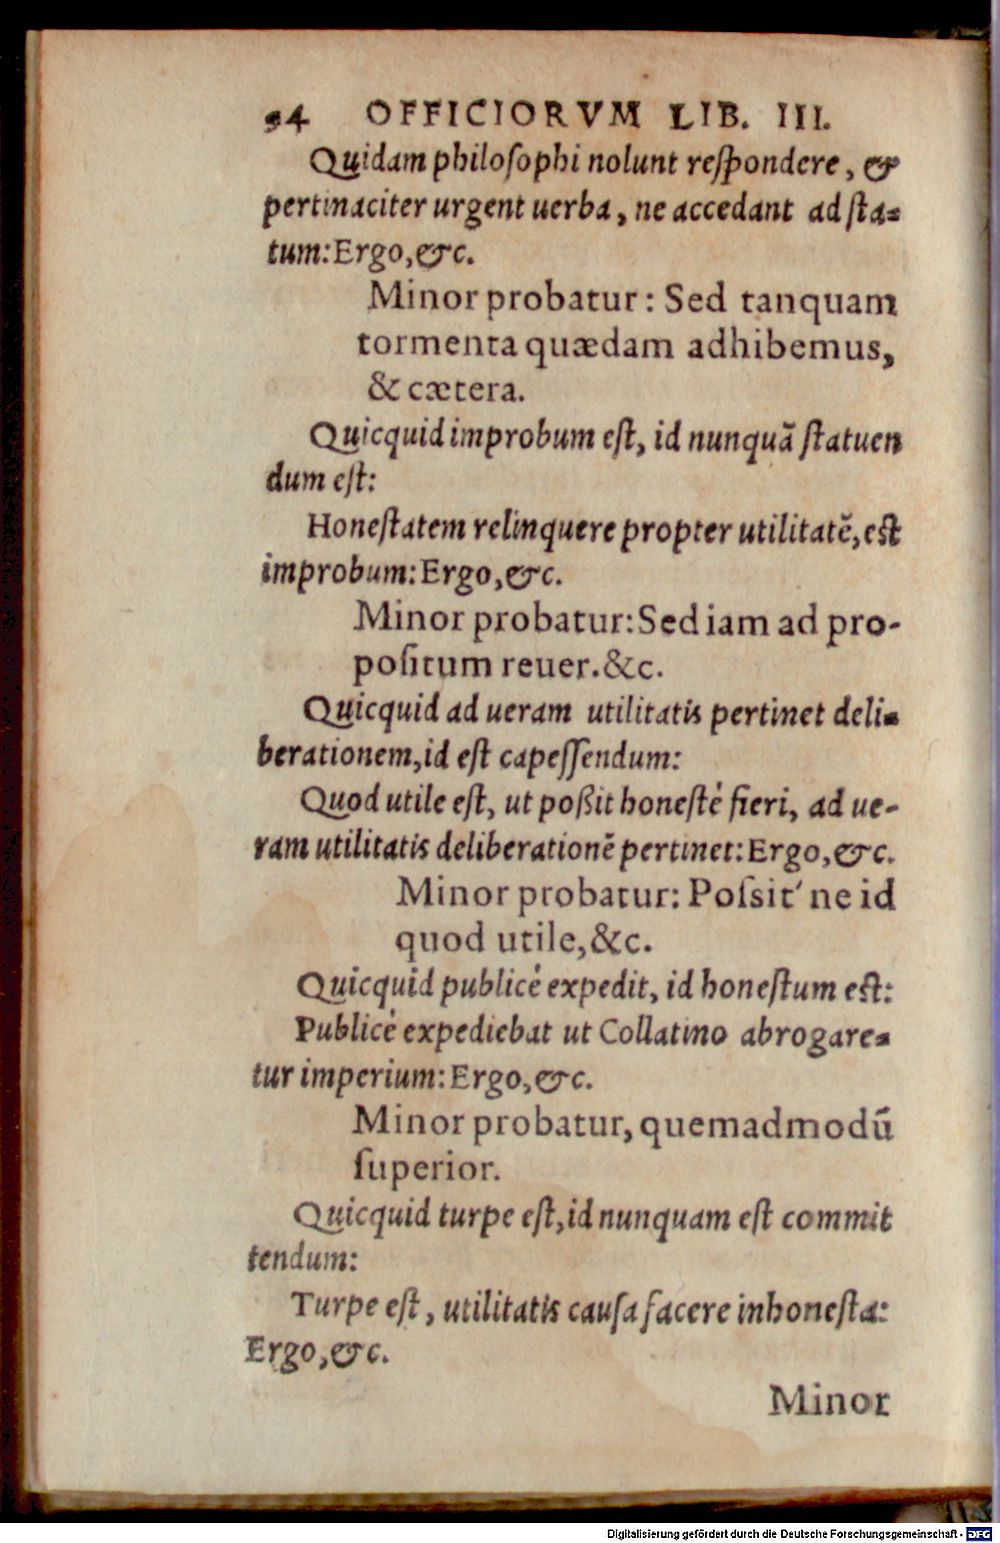 94 OFFICIORVM LIB. III.
Quidam philoſophi nolunt reſpondere, &
pertinaciter urgent uerba, ne accedant ad ſta-
tum: Ergo, &c.
Minor probatur: Sed tanquam
tormenta quædam adhibemus,
& cætera.
Quicquid improbum eſt, id nunquā ſtatuen
dum eſt:
Honeſtatem relinquere propter utilitatē, eſt
improbum: Ergo, &c.
Minor probatur: Sed iam ad pro-
poſitum reuer. &c.
Quicquid ad ueram utilitatis pertinet deli-
berationem, id eſt capeſſendum:
Quod utile eſt, ut poßit honeſté fieri, ad ue-
ram utilitatis deliberationē pertinet: Ergo, &c.
Minor probatur: Poſsit' ne id
quod utile, &c.
Quicquid publicé expedit, id honeſtum eſt:
Publicé expediebat ut Collatino abrogare-
tur imperium: Ergo, &c.
Minor probatur, quemadmodū
ſuperior.
Quicquid turpe eſt, id nunquam eſt commit
tendum:
Turpe eſt, utilitatis cauſa facere inhoneſta:
Ergo, &c.
Minor
Digitalisierung gefördert durch die Deutsche Forschungsgemeinschaft - DFG